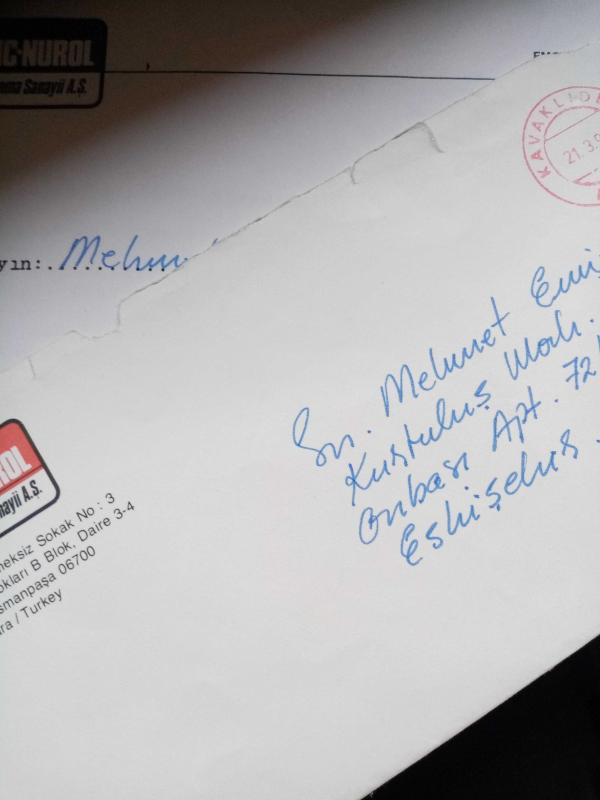 IC-NUROL
ama Sanayii A.Ş.
KAVAKLIDE
21.3.9
yın: Mehm
Sn. Mehmet Emi
Kurtuluş Mah.
Onbaşı Apt. 72/
Eskişehir.
ROL
nayii A.Ş.
neksiz Sokak No : 3
okları B Blok, Daire 3-4
smanpaşa 06700
ra / Turkey